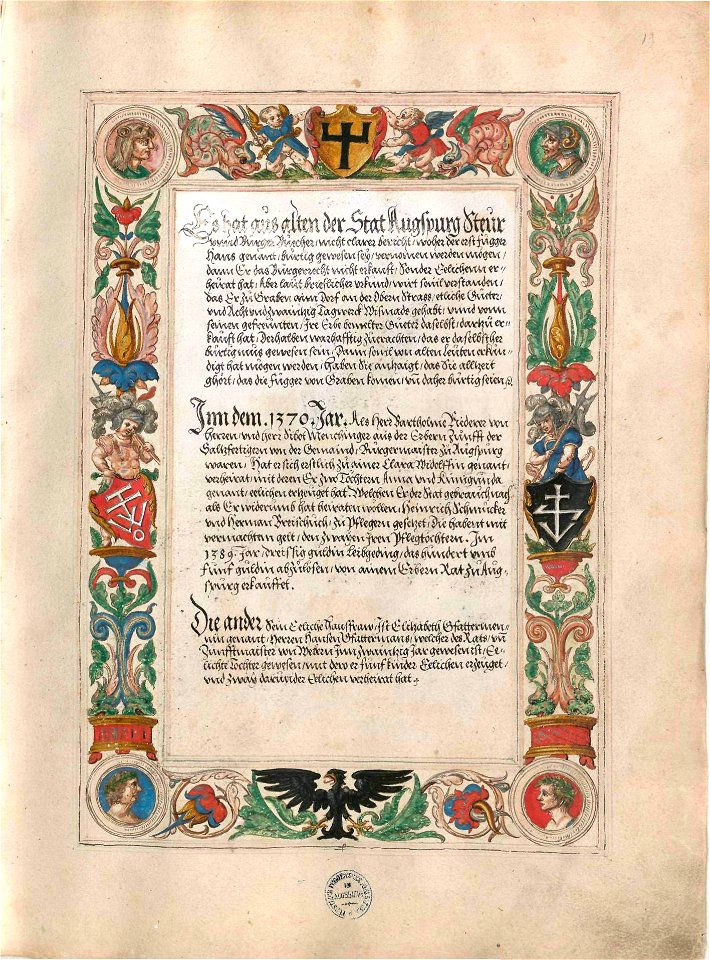 13
Es hat aus alten der Stat Augspurg Steur
vnnd Burger Büecher, nicht clarer bericht, woher der erst Fugger
Hans genant, bürtig gewesen sey, vernomen werden mögen,
dann Er das Bürgerrecht nicht erkaufft, Sonder Eelichenn er-
heirat hat, Aber laut brieflicher vrkund, würt souil verstanden,
das Er zu Graben, ainn Dorf an der Obern Strass, etliche Güeter,
vnd Acht vnd Zwaintzig Tagwerck Wismads gehabt, vnnd vonn
seinen gefreünten, Ire Erb benielter Güeter daselbst, dartzu er-
kaufft hat, Derhalben warhafftig Zuerachten, das er daselbst her
bürtig mus gewesen sein, Dann souil vonn alten Leüten erkün-
digt hat mögen werden, Haben Sie anzaigt, das Sie allzeit
ghört, das die Fugger von Graben komen, vnd daher bürtig seien,
Inn dem .1370. Jar. Als Herr Bartholme Riderer von
herren, vnd Herr Sibot Menchinger aus der Erbern Zunfft der
Saltzfertigen von der Gemaind, Bürgermaister zu Augspurg
waren, Hat er sich erstlich zu ainer Clara Widolffin genant,
verheirat, mit deren Er zwo Töchtern Anna vnd Künigunda
genant, eelichen erzeuget hat. Welchen Er der Stat gebrauch nach
als Er widerumb hat heiraten wöllen, Heinrich Schmucker
vnd Herman Breischuch, zu Pflegern gesetzt, Die habent mit
vermachten gelt, den zwayen Iren Pflegtöchtern, Im
1389. Jar, dreissig guldin Leibgeding, das hundert vmb
fünf guldin abzulösen, von ainem Erbern Rat zu Aug-
spurg erkauffet.
Die ander sein Eeliche Hausfraw, Ist Elizabeth Gfatterman-
nin genant, Herren Hansen Gfattermans, welcher des Rats, vnd
Zunfftmaister von Webern Inn zwaintzig Jar gewesen ist, Ee-
lichte Tochter gewesen, mit dero er fünf kinder Eelichen erzeuget,
vnd zway darunder Eelichen verheirat hat.